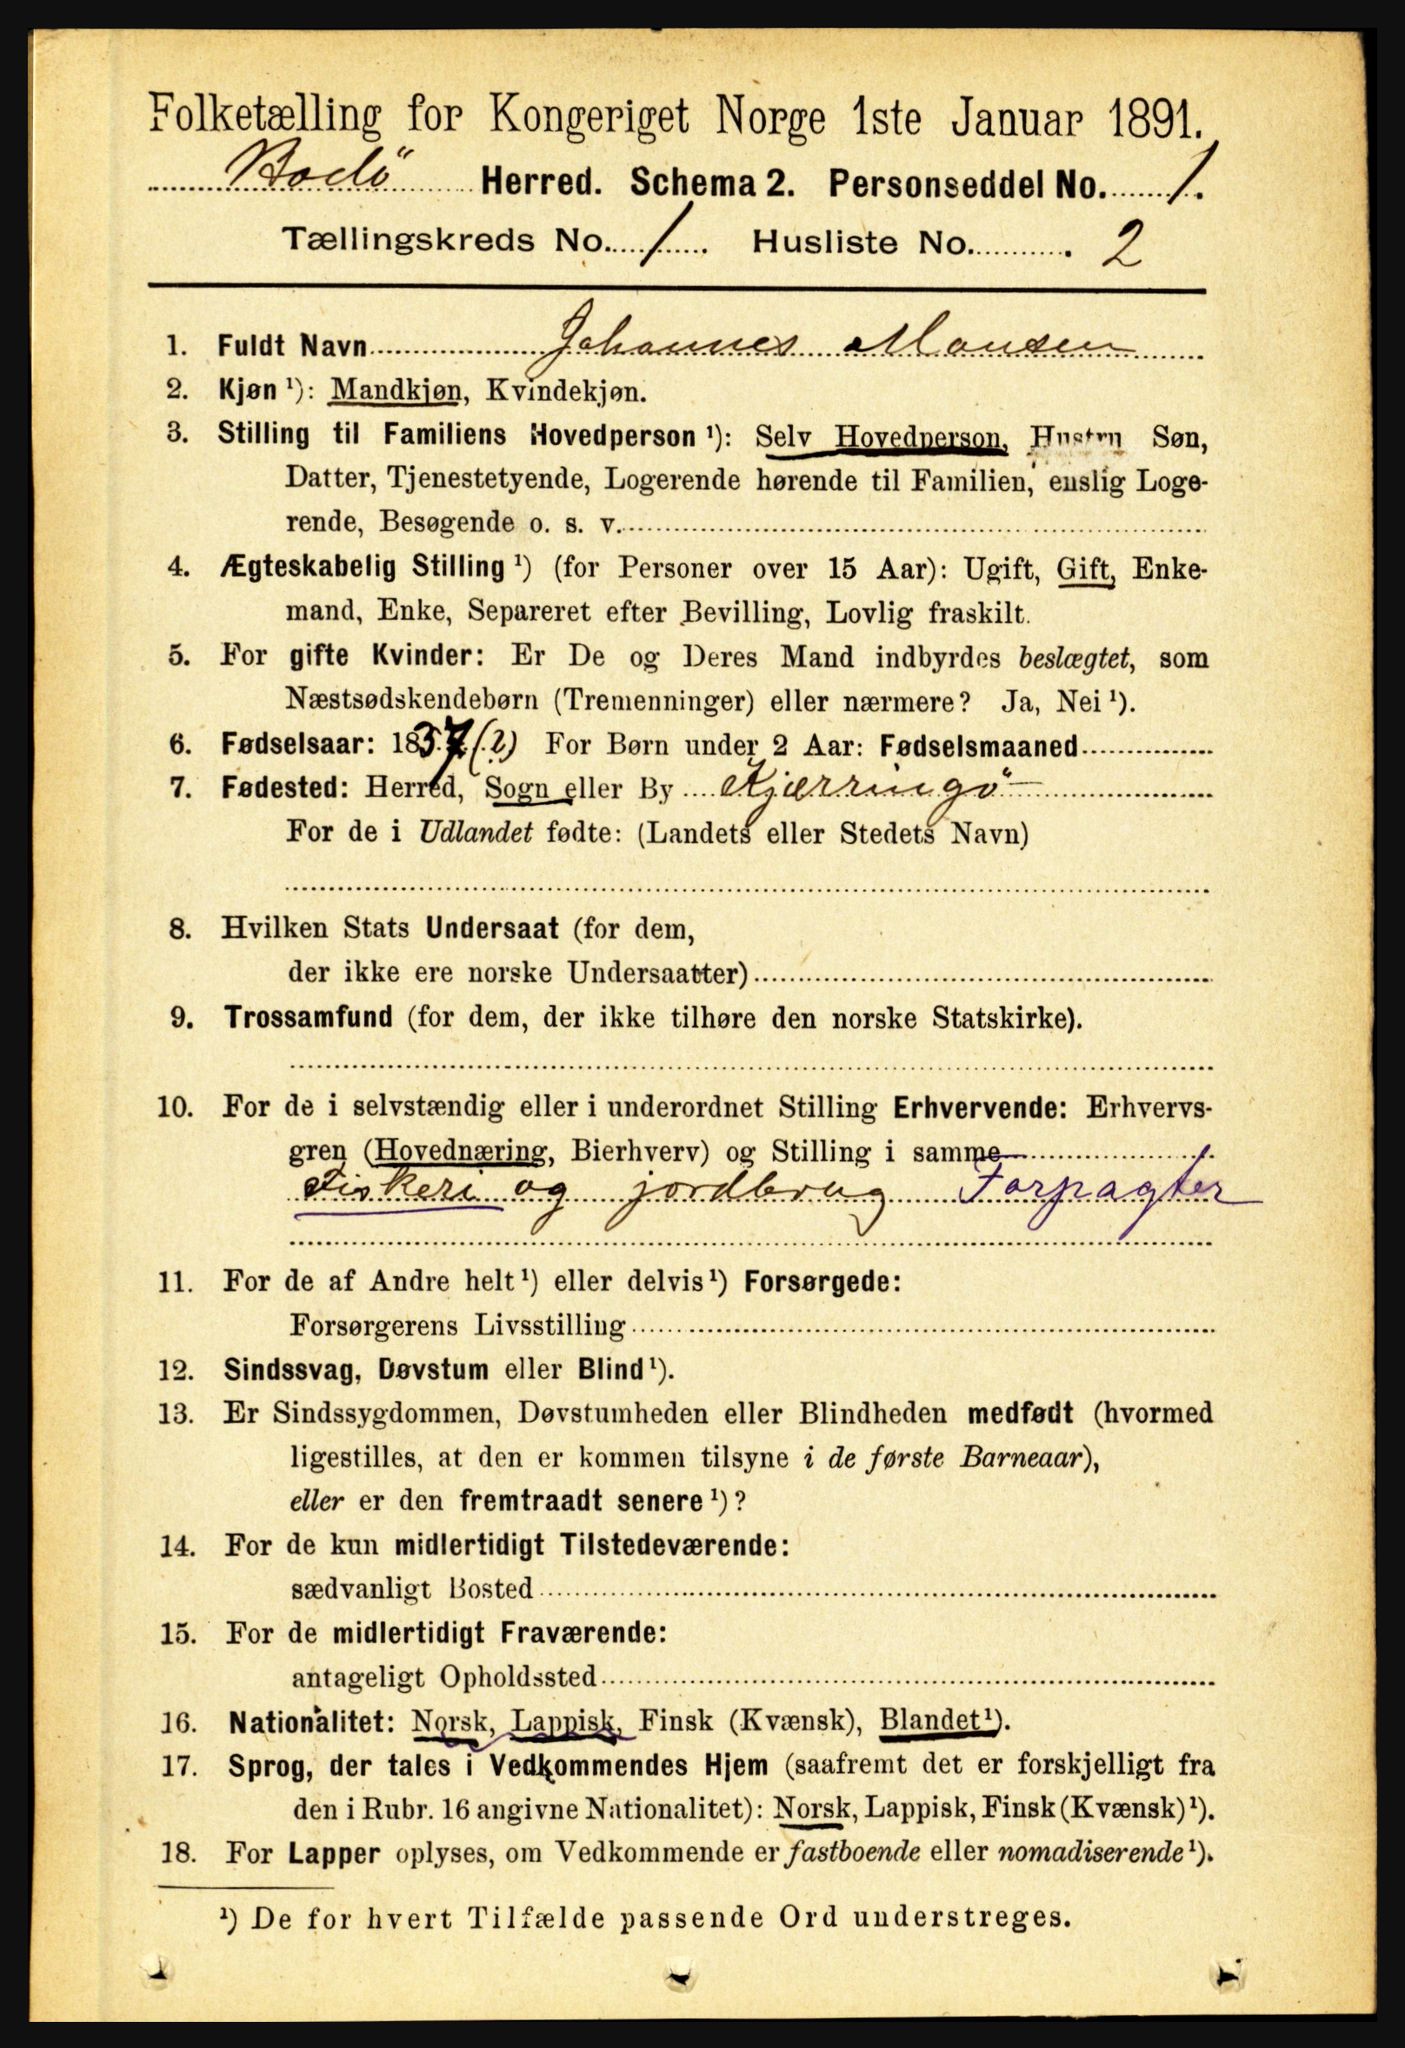 Folketælling for Kongeriget Norge 1ste Januar 1891.
Bodö Herred. Schema 2. Personseddel No. 1.
Tællingskreds No. 1. Husliste No. 2
1. Fuldt Navn Johannes Monsen
2. Kjøn ¹): Mandkjøn, Kvindekjøn.
3. Stilling til Familiens Hovedperson ¹): Selv Hovedperson, Hustru Søn,
Datter, Tjenestetyende, Logerende hørende til Familien, enslig Loge-
rende, Besøgende o. s. v.
4. Ægteskabelig Stilling ¹) (for Personer over 15 Aar): Ugift, Gift, Enke-
mand, Enke, Separeret efter Bevilling, Lovlig fraskilt.
5. For gifte Kvinder: Er De og Deres Mand indbyrdes beslægtet, som
Næstsødskendebørn (Tremenninger) eller nærmere? Ja, Nei ¹).
6. Fødselsaar: 1837 (?) For Børn under 2 Aar: Fødselsmaaned
7. Fødested: Herred, Sogn eller By Kjærringö
For de i Udlandet fødte: (Landets eller Stedets Navn)
8. Hvilken Stats Undersaat (for dem,
der ikke ere norske Undersaatter)
9. Trossamfund (for dem, der ikke tilhøre den norske Statskirke).
10. For de i selvstændig eller i underordnet Stilling Erhvervende: Erhvervs-
gren (Hovednæring, Bierhverv) og Stilling i samme
Fiskeri og jordbrug Forpagter
11. For de af Andre helt ¹) eller delvis ¹) Forsørgede:
Forsørgerens Livsstilling
12. Sindssvag, Døvstum eller Blind ¹).
13. Er Sindssygdommen, Døvstumheden eller Blindheden medfødt (hvormed
ligestilles, at den er kommen tilsyne i de første Barneaar),
eller er den fremtraadt senere ¹)?
14. For de kun midlertidigt Tilstedeværende:
sædvanligt Bosted
15. For de midlertidigt Fraværende:
antageligt Opholdssted
16. Nationalitet: Norsk, Lappisk, Finsk (Kvænsk), Blandet ¹).
17. Sprog, der tales i Vedkommendes Hjem (saafremt det er forskjelligt fra
den i Rubr. 16 angivne Nationalitet): Norsk, Lappisk, Finsk (Kvænsk) ¹).
18. For Lapper oplyses, om Vedkommende er fastboende eller nomadiserende ¹).
¹) De for hvert Tilfælde passende Ord understreges.